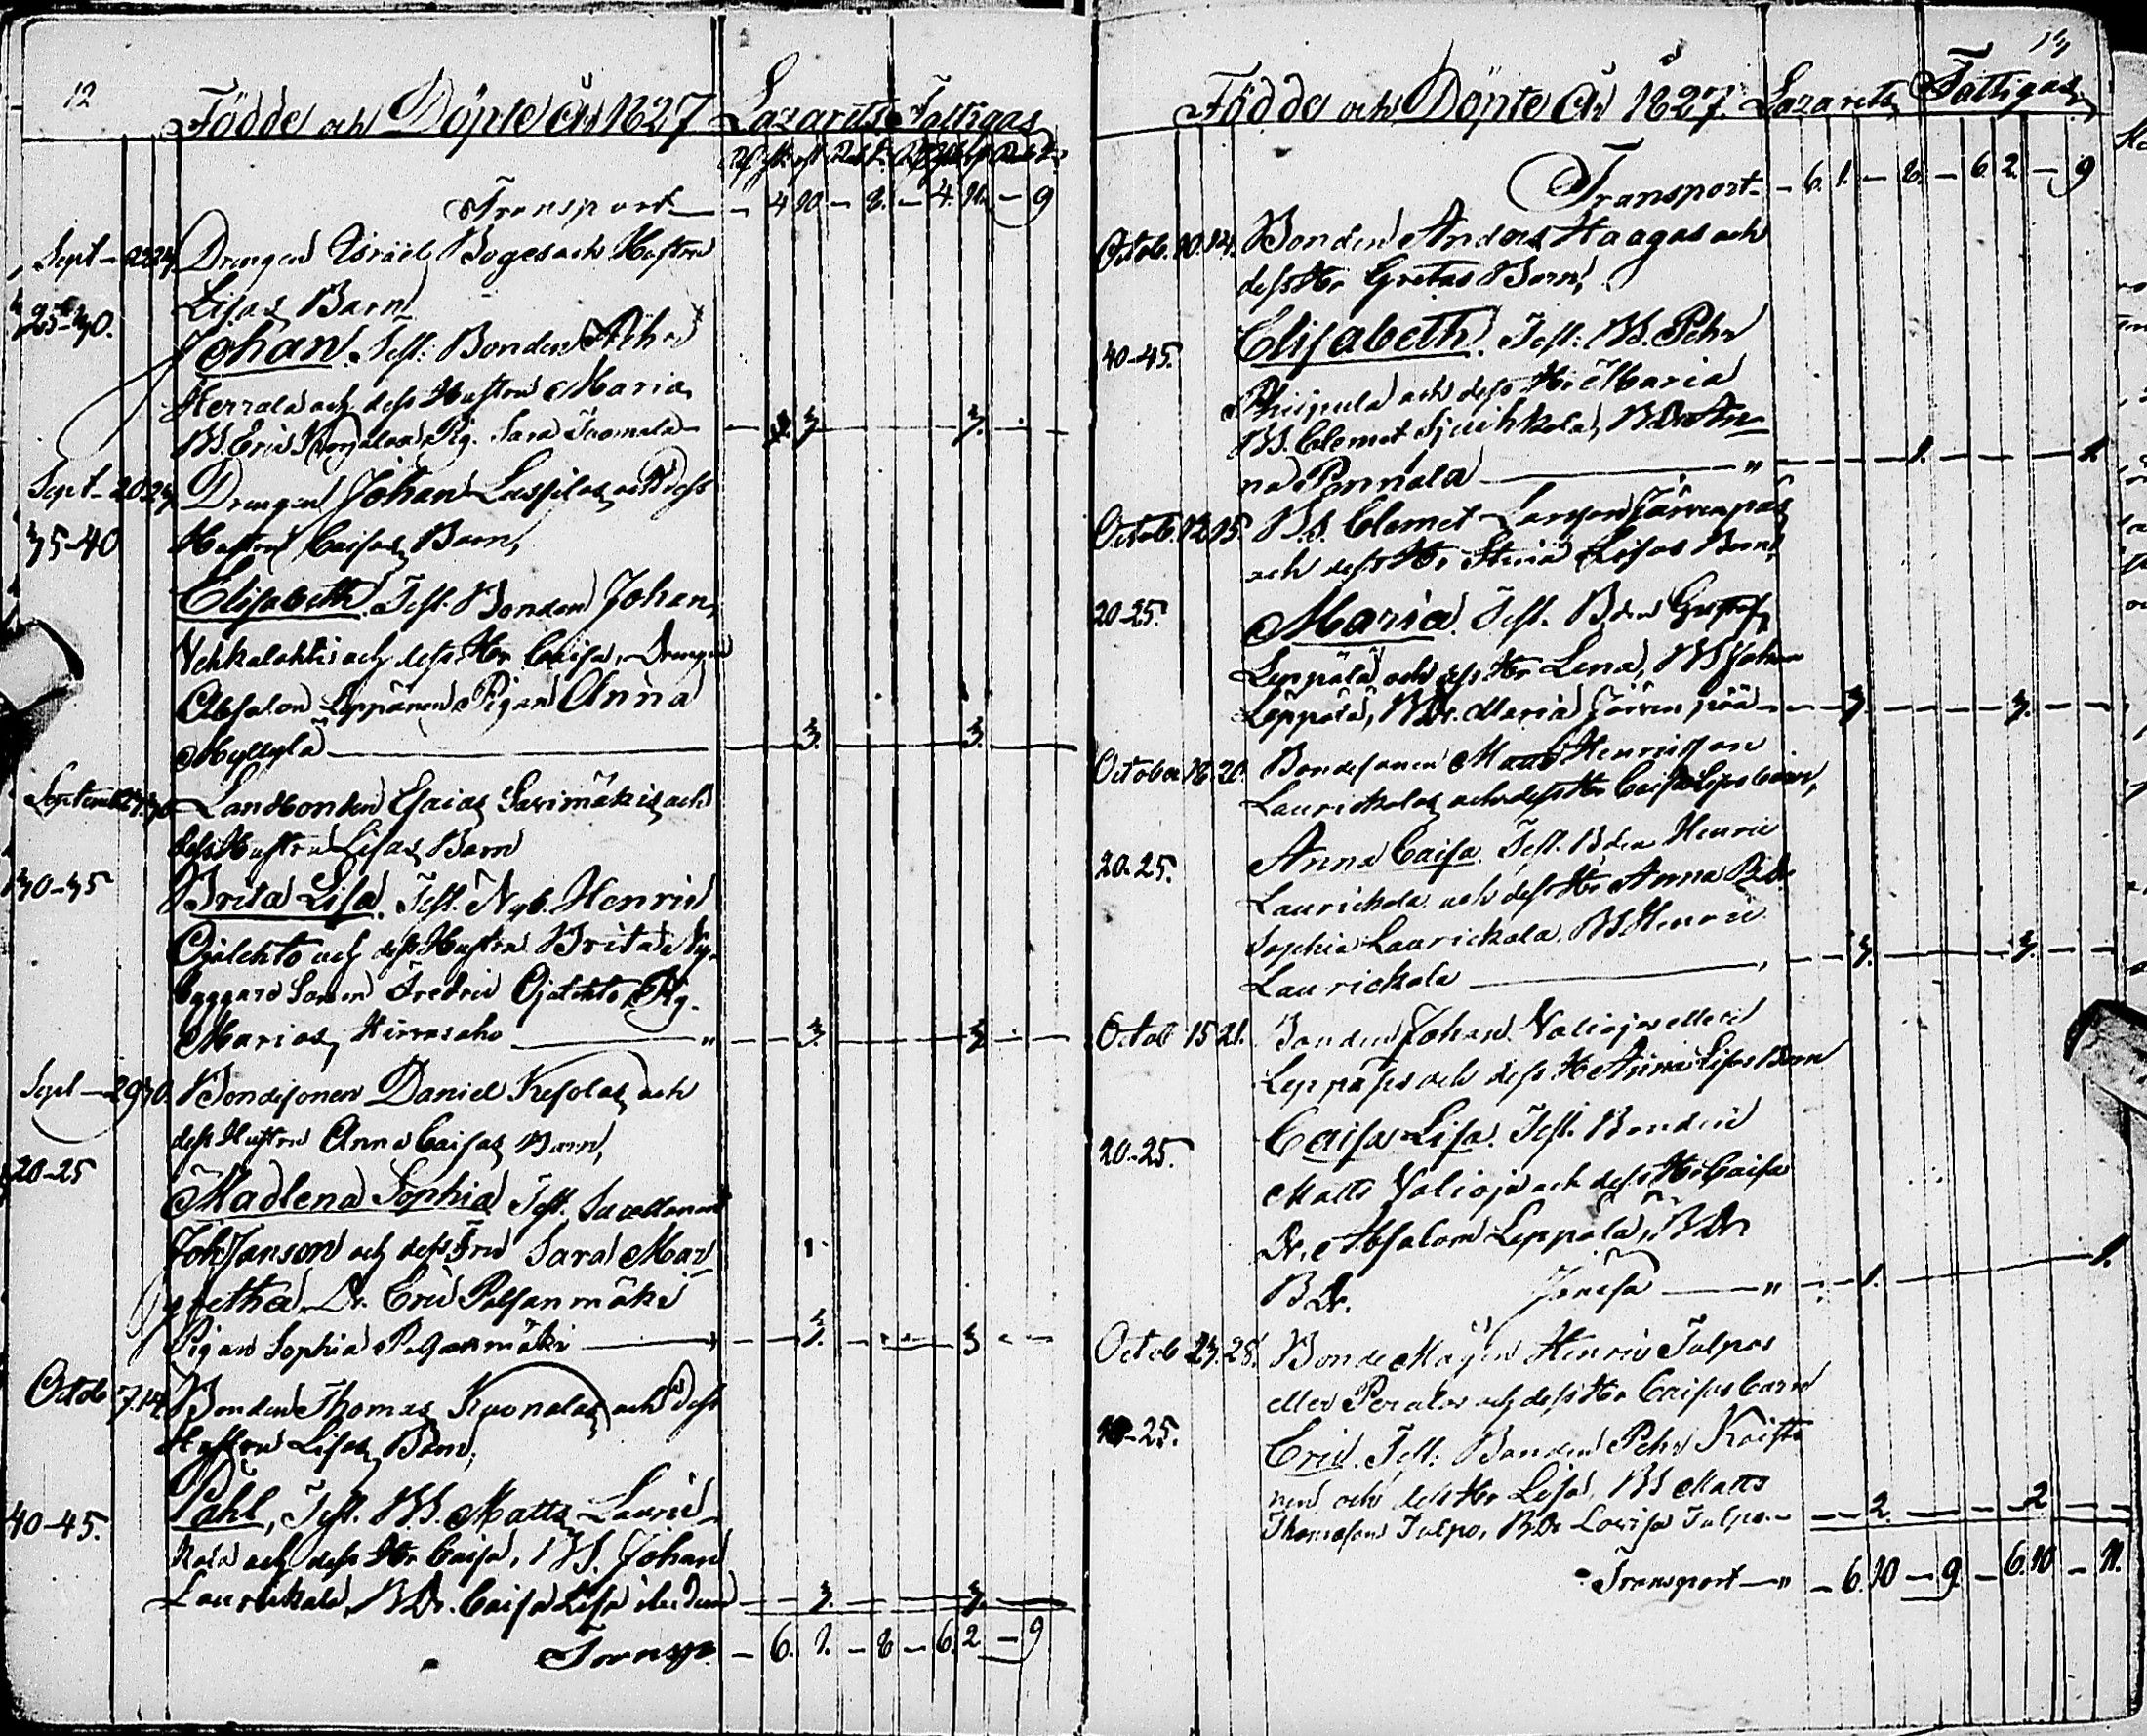 12
Födde och Döpte År 1827 Lazarets Fattigas
Transport — - 4 10 - 8. - 4. 11. - 9
Sept - 22 24 Drengen Israel Boges och Hustru
Lisas Barn
25-30. Johan. Test: Bonden
Herrala och dess Hustru Maria
BS. Eric Pig. Sara Tuomala - 3 3.
Sept - 20 24 Drengen Johan Lassilas och dess
35-40 Hustru Caisas Barn,
Elisabeth. Test. Bonden Johan
Vehkalahti och dess Hr Caisa, Drengen
Absalon Leppänen Pigan Anna
Myllylä — 3. 3.
Landbonden Esaias Sarimäkis och
dess Hustru Lisas Barn
30-35 Brita Lisa. Test. Nyb. Henric
Ojalehto och dess Hustru Brita Ny-
byggare Sonen Fredric Ojalehto, Pig.
Marias, Hirvasaho — 3. 3
Sept - 29 30 Bondesonen Daniel Kesolas och
dess Hustru Anna Caisas Barn,
20-25 Madlena Sophia Test. Sacellanen
Joh Janson och dess Fru Sara Mar
gretha, Dr. Eric Palsanmäki
Pigan Sophia Palsanmäki — 3. 3
Octob 7.14 Bonden Thomas Kuonalas och dess
Hustru Lisas Barn,
40-45. Pähl, Test. BS. Matts Lauric-
kala och dess Hr Caisa, BS. Johan
Laurickala, BDr. Caisa Lisa ibidem - 3. 3.
Transp. - 6. 1. - 8 - 6. 2 - 9
13
Födde och Döpte År 1827. Lazarets Fattigas
Transport - 6. 1. - 8. - 6. 2. - 9
Octob. 10. 14. Bonden Anders Haagas och
dess Hr Gretas Barn,
40-45. Elisabeth. Test: BS. Pehr
och dess Hr Maria
BS. Clemet BDr An-
na Pannala — " 1. 1.
Octob. 12 15 BS. Clemet Larsson Järvenpäs
och dess Hr Stina Lisas Barn,
20-25. Maria. Test. Bden Gustaf
Leppälä och dess Hr Lena, BS Johan
Leppälä, BDr. Maria Järvenpää - 3. 3.
October 18. 21. Bondesonen Mats Henricsson
Laurickalas och dess Hr Caisa Lisas barn,
20-25. Anna Caisa. Test. Bden Henric
Laurickala och dess Hr Anna BDr.
Sophia Laurickala, BS Henric
Laurickala — 3. 3.
Octob 15 21. Bonden Johan Valioja eller
och dess Hr Anna Lisas Barn
20-25. Caisa Lisa. Test. Bonden
Matts Valioja och dess Hr Caisa
Dr. Absalom Leppälä, BDr
BDr. — " 1. 1.
Octob 23. 28. Bonde Mågen Henric Talpas
eller Peralas och dess Hr Caisas barn
-25. Eric. Test: Bonden Pehr Koisti
nen och dess Hr Lisa, BS Matts
Thomasson Talpo, BDr Lovisa Talpo. - 2. 2
Transport — " - 6. 10 - 9. - 6. 10 - 11.